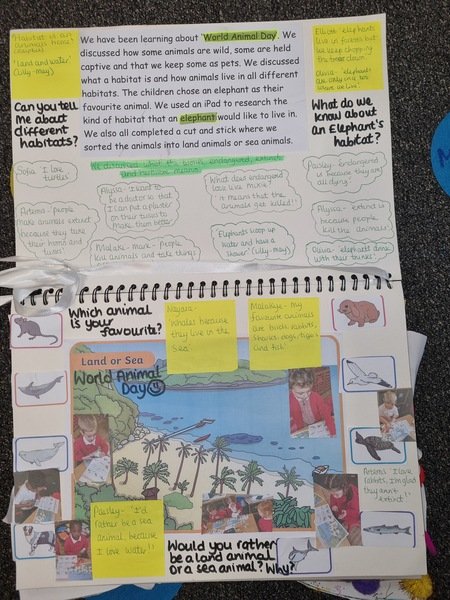 Habitat is an
animals home.
'land and water'
(Lilly-may)
We have been learning about 'World Animal Day'. We
discussed how some animals are wild, some are held
captive and that we keep some as pets. We discussed
what a habitat is and how animals live in all different
habitats. The children chose an elephant as their
favourite animal. We used an iPad to research the
kind of habitat that an elephant would like to live in.
We also all completed a cut and stick where we
sorted the animals into land animals or sea animals.
Elliott- elephants
live in forests but
we keep chopping
the trees down.
Olivia - elephants
are only in
where we live!
Can you tell
me about
different
habitats?
What do we
know about
an Elephant's
habitat?
We discussed what the words endangered, extinct
and means.
Sofia I love
turtles
Alyssa- I want to
be a doctor so that
I can put a plaster
on their tusks to
make them better
What does endangered
mean?
it means that the
animals get killed!!
Paisley- endangered
is because they are
all dying!
Artema - people
make animals extinct
because they take
their horns and
tusks!
Malakye- mark - People
kill animals and take things
Elephants scoop up
water and have a
shower (Lilly-may)
Alyssa - Extinct is
because people
kill the animals
Olivia- elephants drink
with their trunks!
Which animal
is your
favourite?
Nayara-
Whales because
they live in the
Sea
Malakye- my
favourite animals
are birds, rabbits,
sharks, dogs, tigers
and fish!
Land or Sea
World Animal
Day
Artema I love
rabbits, I'm glad
they aren't
'extinct'!
Paisley- "I'd
rather be a sea
animal, because
I love water"!!
Would you rather
be a land animal
or a sea animal? Why?